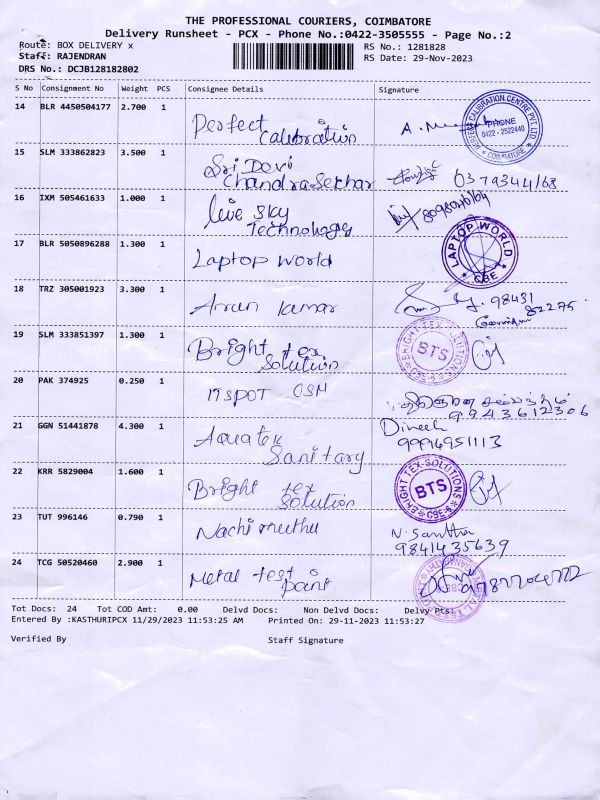 THE PROFESSIONAL COURIERS, COIMBATORE
Delivery Runsheet - PCX - Phone No.:0422-3505555 - Page No.:2
Route: BOX DELIVERY x
RS No.: 1281828
Staff: RAJENDRAN
RS Date: 29-Nov-2023
DRS No.: DCJB128182802
S No Consignment No Weight PCS Consignee Details Signature
14 BLR 4450504177 2.700 1
Perfect Calibration
CALIBRATION CENTRE PVT. LTD.
PHONE
0422-2522440
COIMBATORE
15 SLM 333862823 3.500 1
Sri Devi
Chandrasekhar
16 IXM 505461633 1.000 1
live sky
Technology
17 BLR 5050896288 1.300 1
Laptop world
LAPTOP WORLD
CBE
18 TRZ 305001923 3.300 1
Arun kumar
98431
82275
19 SLM 333851397 1.300 1
Bright tex
Solution
BRIGHT TEX SOLUTIONS
BTS
CBE-6
20 PAK 374925 0.250 1
ITSPOT
9943612306
21 GGN 51441878 4.300 1
Aquatek
Sanitary
Dinesh
9994951113
22 KRR 5829004 1.600 1
Bright tex
Solution
BRIGHT TEX SOLUTIONS
BTS
CBE-6
23 TUT 996146 0.790 1
Nachimuthu
N. Santha
9841435639
24 TCG 50520460 2.900 1
Metal test
point
Tot Docs: 24 Tot COD Amt: 0.00 Delvd Docs: Non Delvd Docs: Delvy Pts:
Entered By :KASTHURIPCX 11/29/2023 11:53:25 AM Printed On: 29-11-2023 11:53:27
Verified By Staff Signature